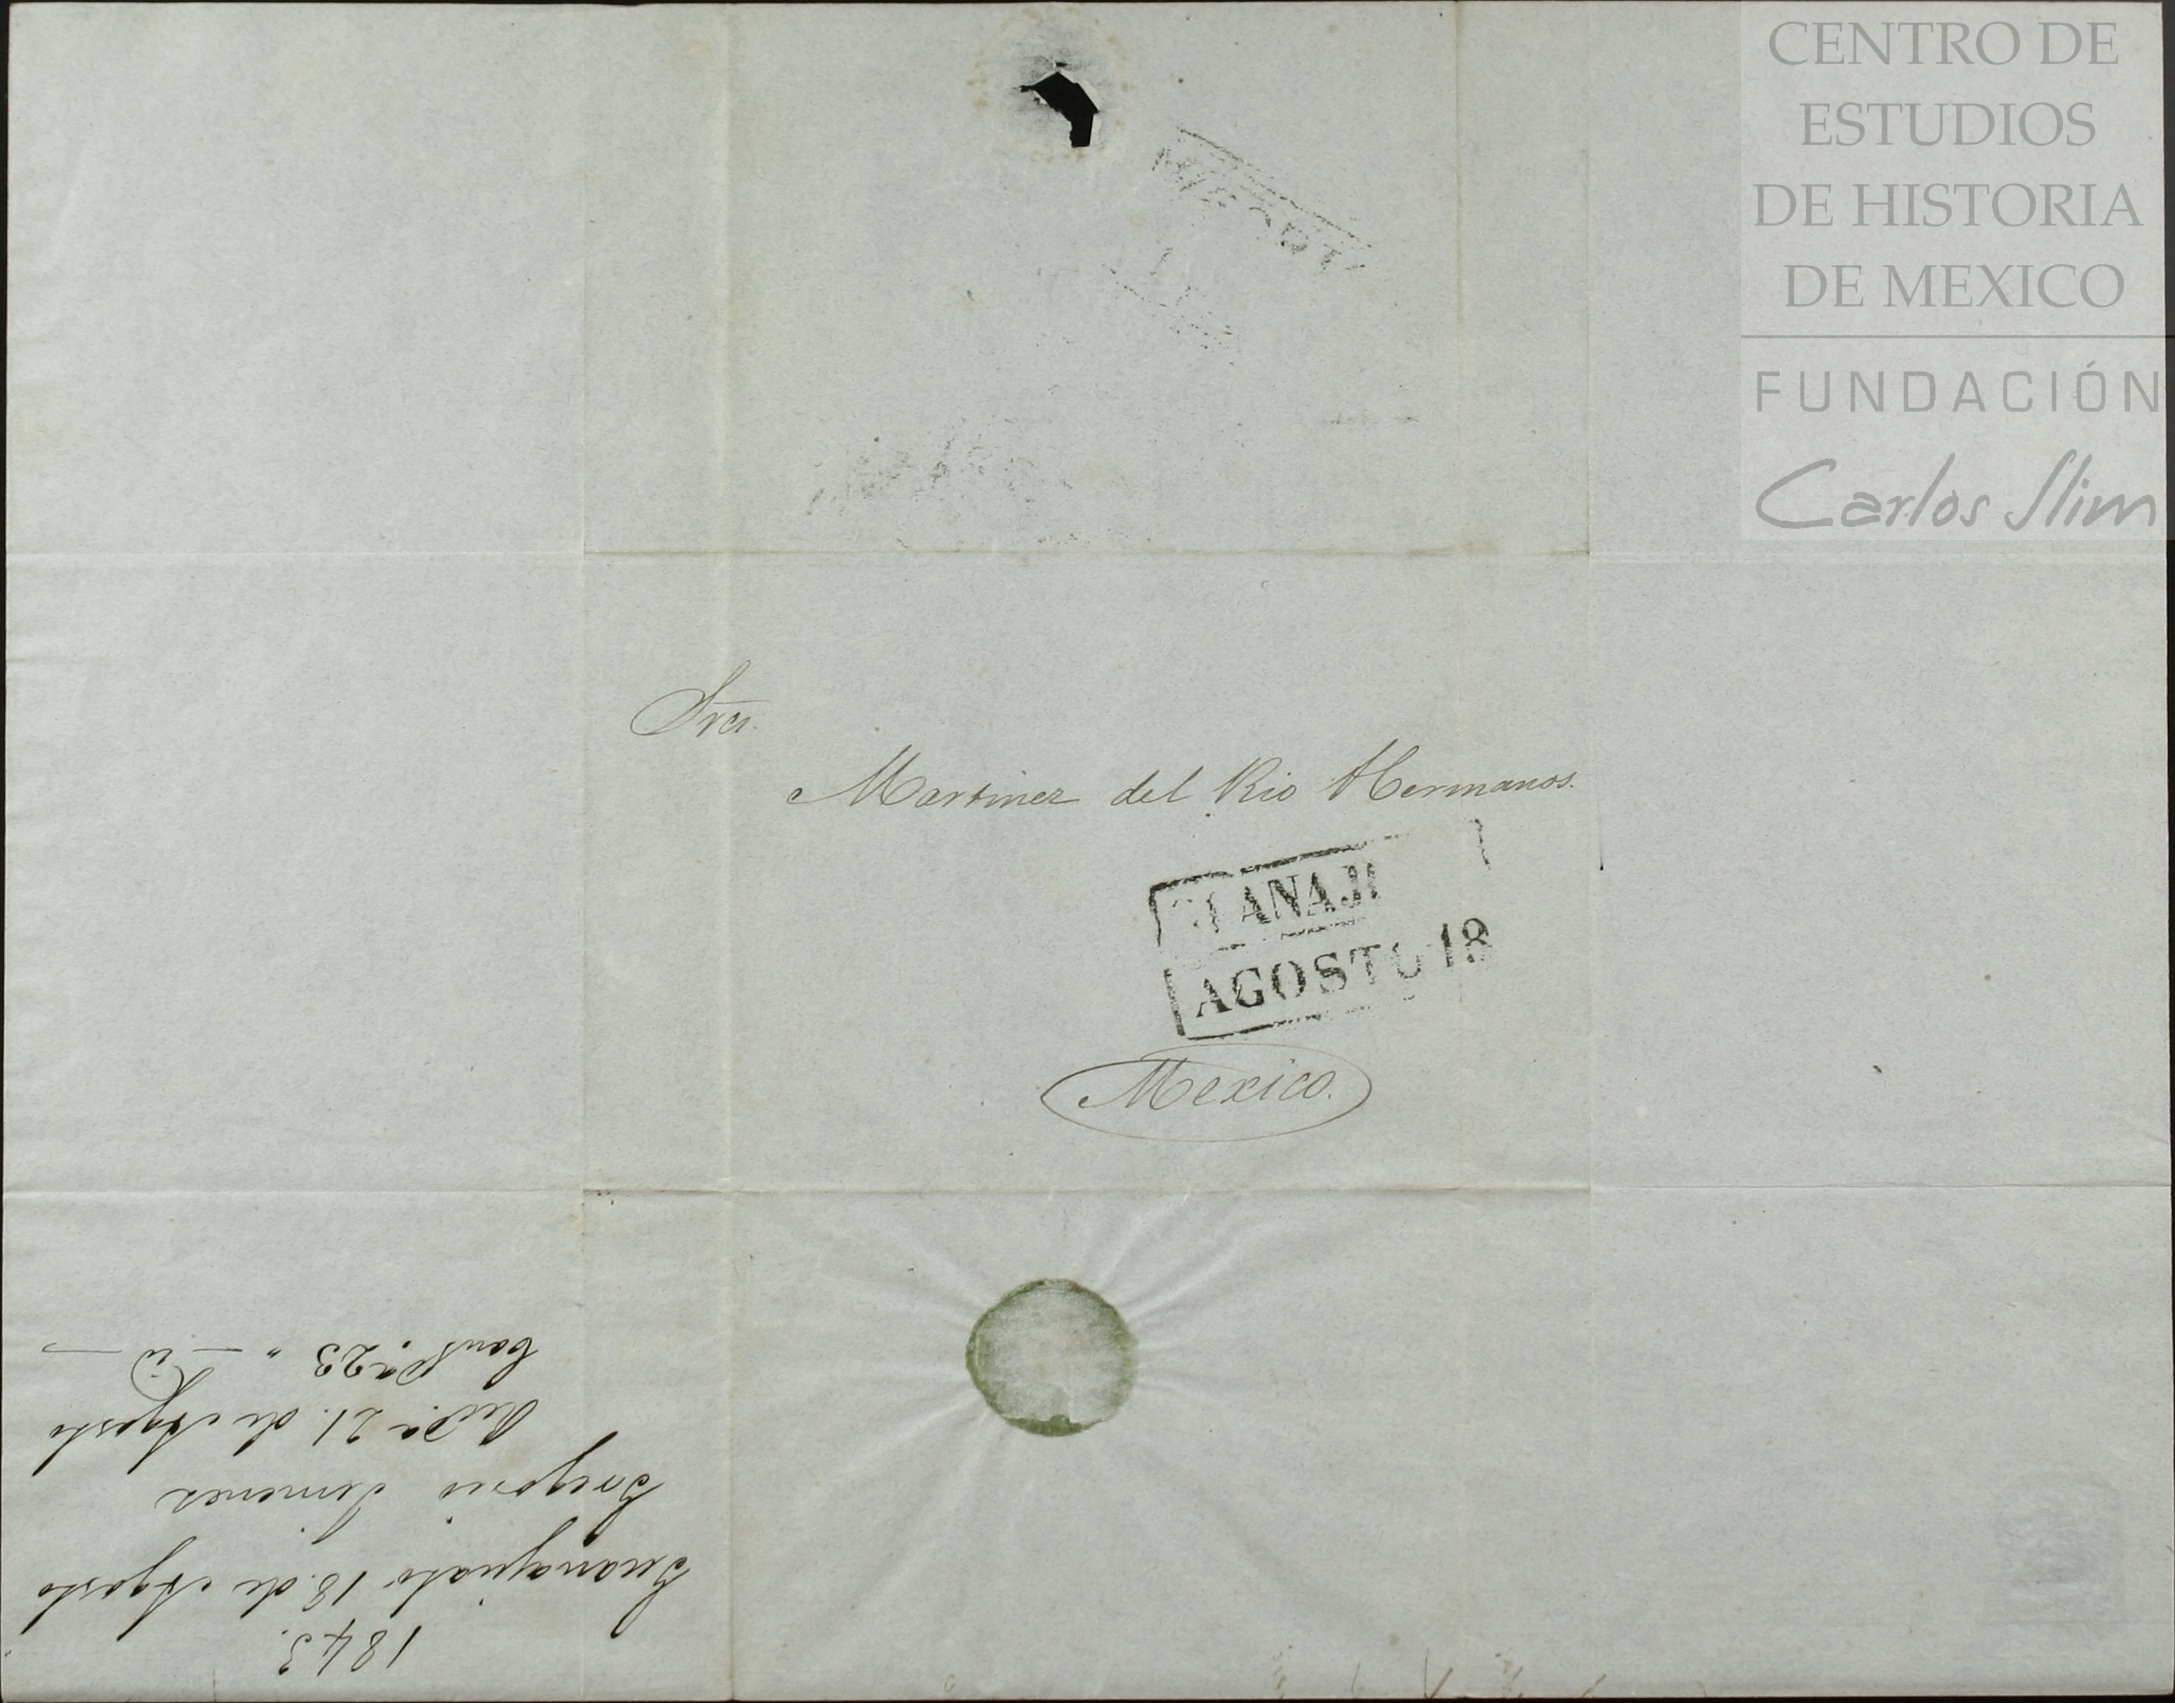 CENTRO DE
ESTUDIOS
DE HISTORIA
DE MEXICO
FUNDACIÓN
Carlos Slim
Sres.
Martinez del Rio Hermanos.
ANAJ
AGOSTO 18
Mexico.
1843.
Guanajuato 18. de Agosto
Gregorio Jimenez
Reda 21. de Agosto
Conta 23 " — id —